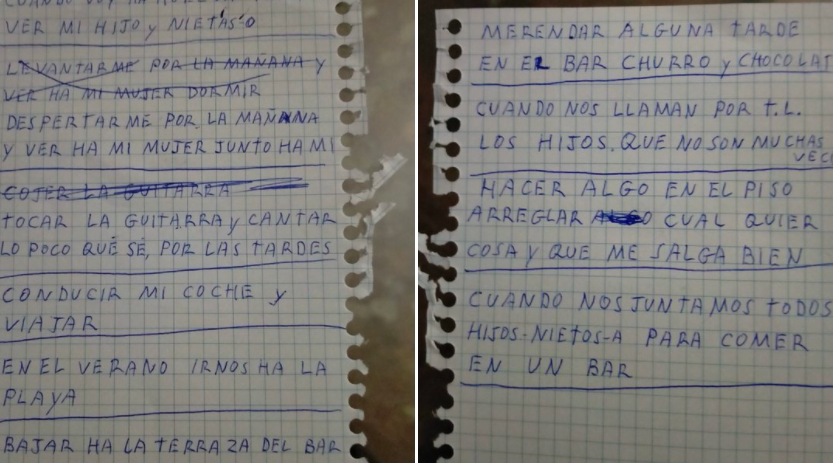 VER MI HIJO y NIETAS-O
LEVANTARME POR LA MAÑANA y
VER HA MI MUJER DORMIR
DESPERTARME POR LA MAÑANA
Y VER HA MI MUJER JUNTO HA MI
COJER LA GUITARRA
TOCAR LA GUITARRA y CANTAR
LO POCO QUÉ SÉ, POR LAS TARDES
CONDUCIR MI COCHE y
VIAJAR
EN EL VERANO IRNOS HA LA
PLAYA
BAJAR HA LA TERRAZA DEL BAR
MERENDAR ALGUNA TARDE
EN EL BAR CHURRO y CHOCOLAT
CUANDO NOS LLAMAN POR T.L.
LOS HIJOS. QUE NO SON MUCHAS
VEC
HACER ALGO EN EL PISO
ARREGLAR ALGO CUAL QUIER
COSA y QUE ME SALGA BIEN
CUANDO NOS JUNTAMOS TODOS
HIJOS-NIETOS-A PARA COMER
EN UN BAR